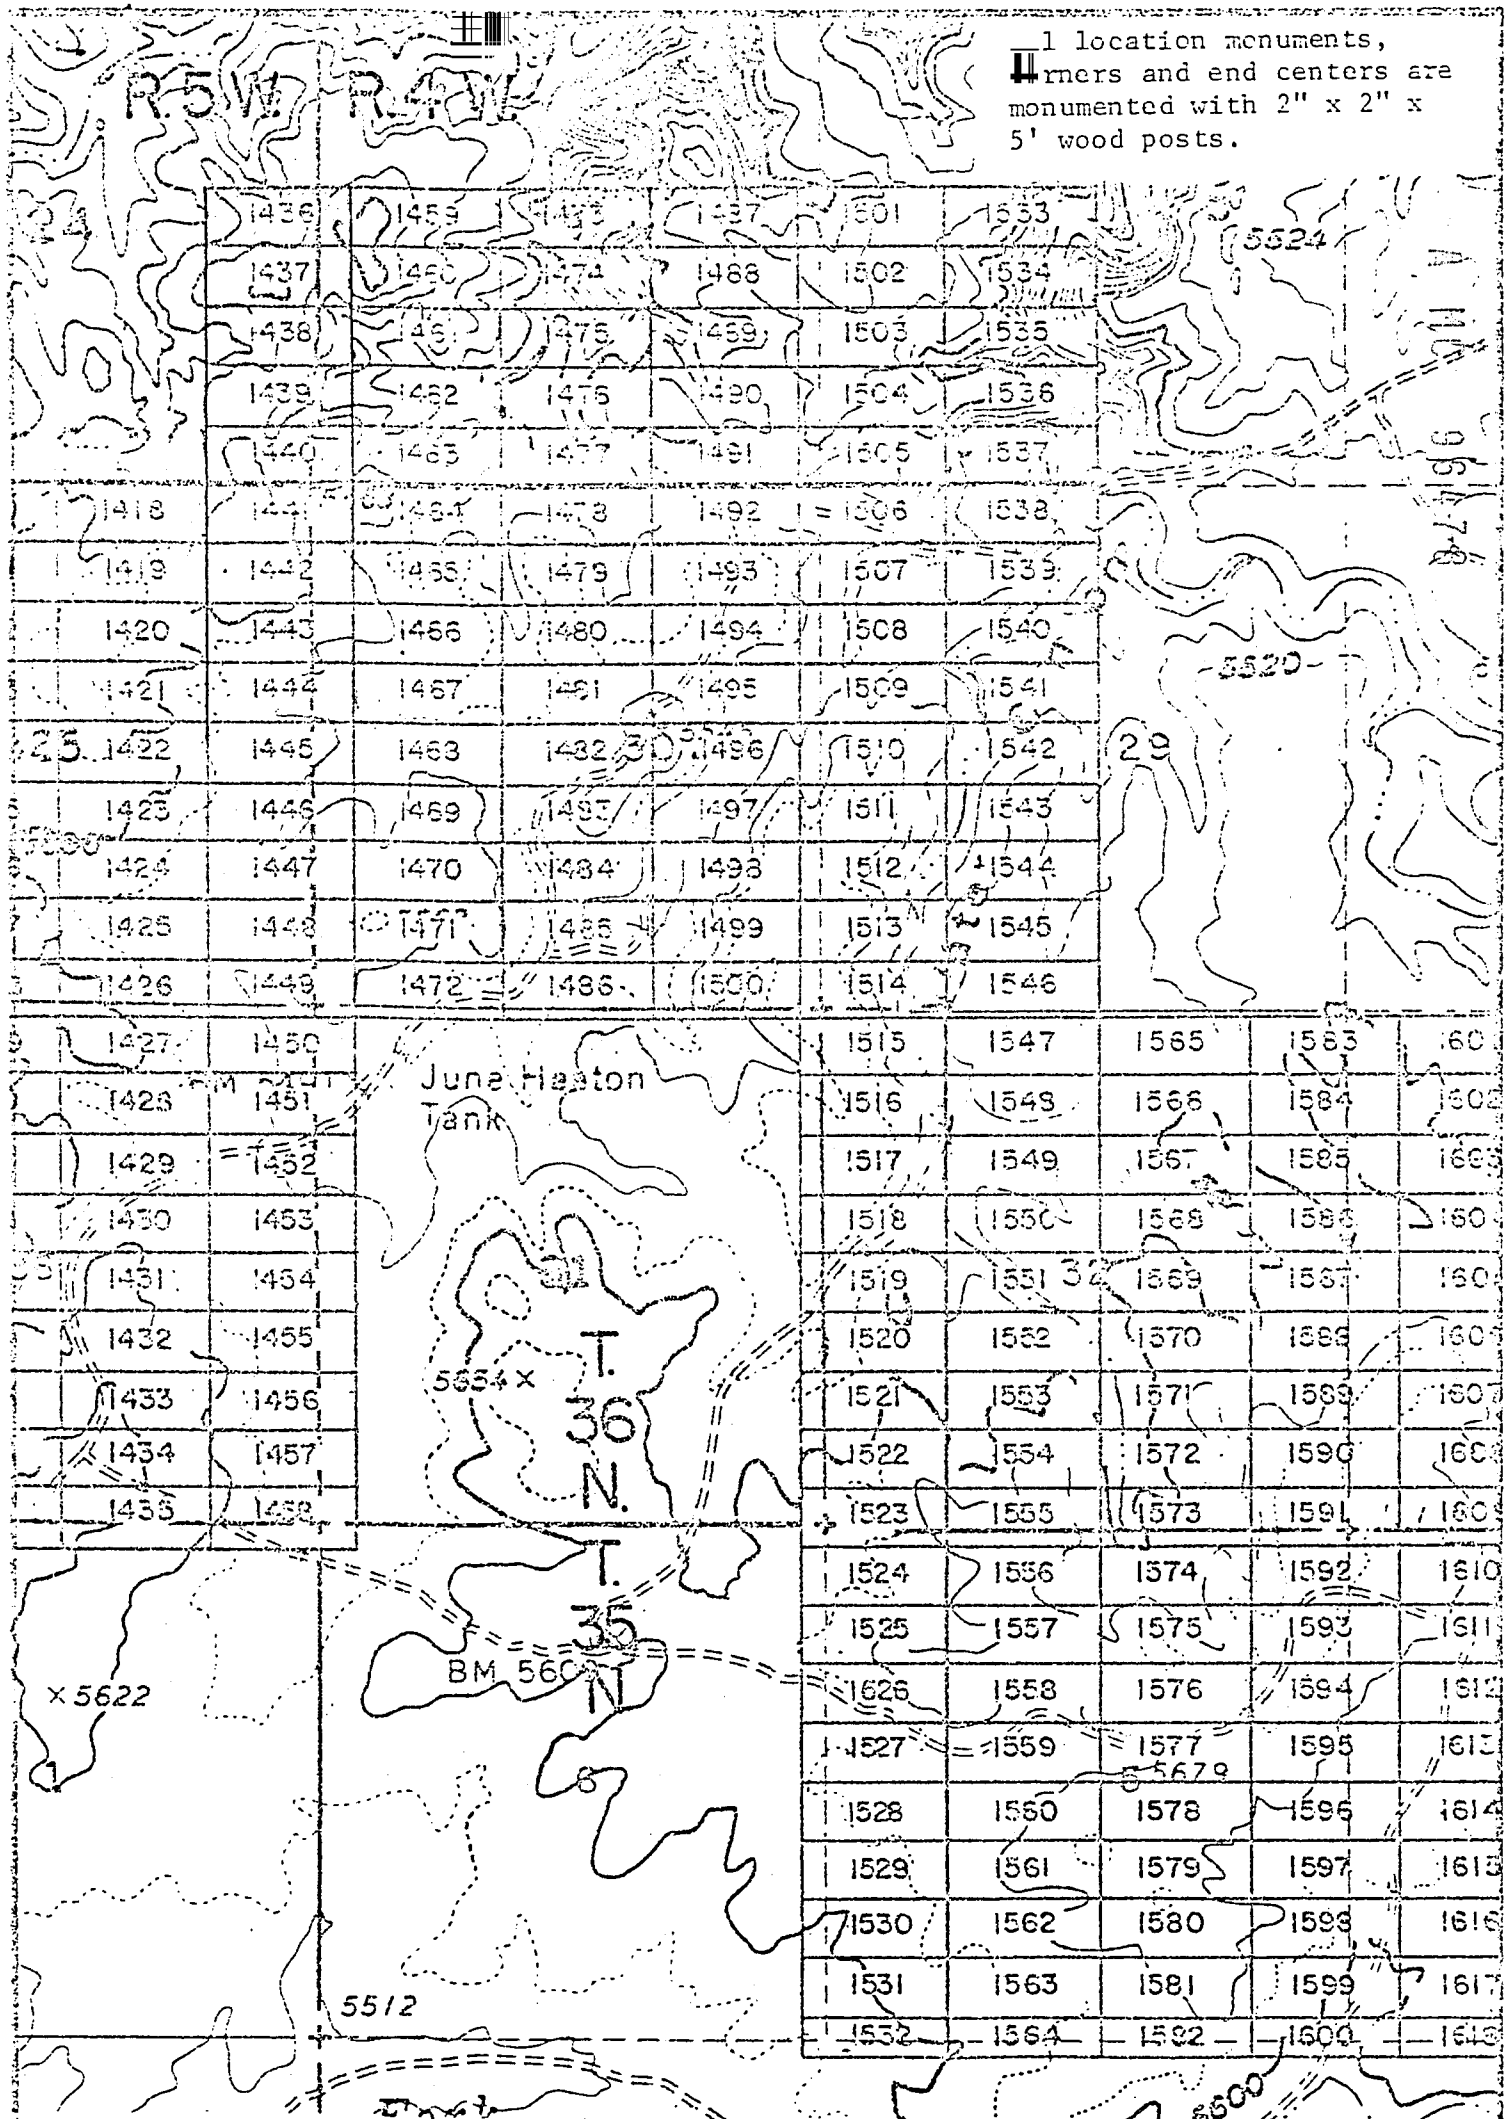 1 location monuments,
rners and end centers are
monumented with 2" x 2" x
5' wood posts.
R.5W. R.4W.
1436 1459 1473 1487 1501 1533
5524
1437 1460 1474 1488 1502 1534
1438 1461 1475 1489 1503 1535
1439 1462 1476 1490 1504 1536
1440 1463 1477 1491 1505 1537
1418 1441 1464 1478 1492 1506 1538
1419 1442 1465 1479 1493 1507 1539
1420 1443 1466 1480 1494 1508 1540
5520
1421 1444 1467 1481 1495 1509 1541
25 1422 1445 1468 1482 30 1496 1510 1542 29
1423 1446 1469 1483 1497 1511 1543
1424 1447 1470 1484 1498 1512 1544
1425 1448 1471 1485 1499 1513 1545
1426 1449 1472 1486 1500 1514 1546
1427 1450 1515 1547 1565 1583
June Heaton
Tank
1428 1451 1516 1548 1566 1584 1602
1429 1452 1517 1549 1567 1585 1603
1430 1453 1518 1550 1568 1586
1431 1454 1519 1551 32 1569 1587
1432 1455 T. 1520 1552 1570 1588
5654 x
1433 1456 36 1521 1553 1571 1589 1607
1434 1457 N. 1522 1554 1572 1590
1435 1458 1523 1555 1573 1591 1609
T. 1524 1556 1574 1592 1610
35 1525 1557 1575 1593 1611
BM 560
N
x 5622 1626 1558 1576 1594 1612
1527 1559 1577 1595 1613
1 6 5 5679
1528 1560 1578 1596 1614
1529 1561 1579 1597 1615
1530 1562 1580 1598 1616
1531 1563 1581 1599 1617
5512
1532 1564 1582 1600 1618
5600